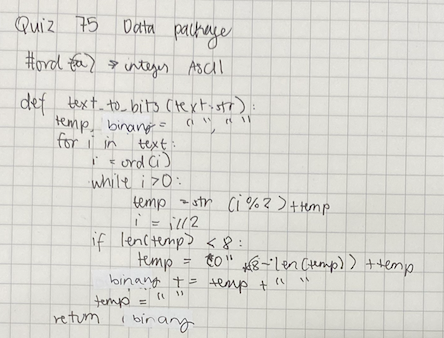 Quiz 75 Data package
#ord (a) → integer ASCII
def text_to_bits (text:str):
temp, binary = " ", " "
for i in text:
i = ord(i)
while i > 0:
temp = str (i%2) + temp
i = i//2
if len(temp) < 8:
temp = "0" * (8 - len(temp)) + temp
binary += temp + " "
temp = " "
return binary